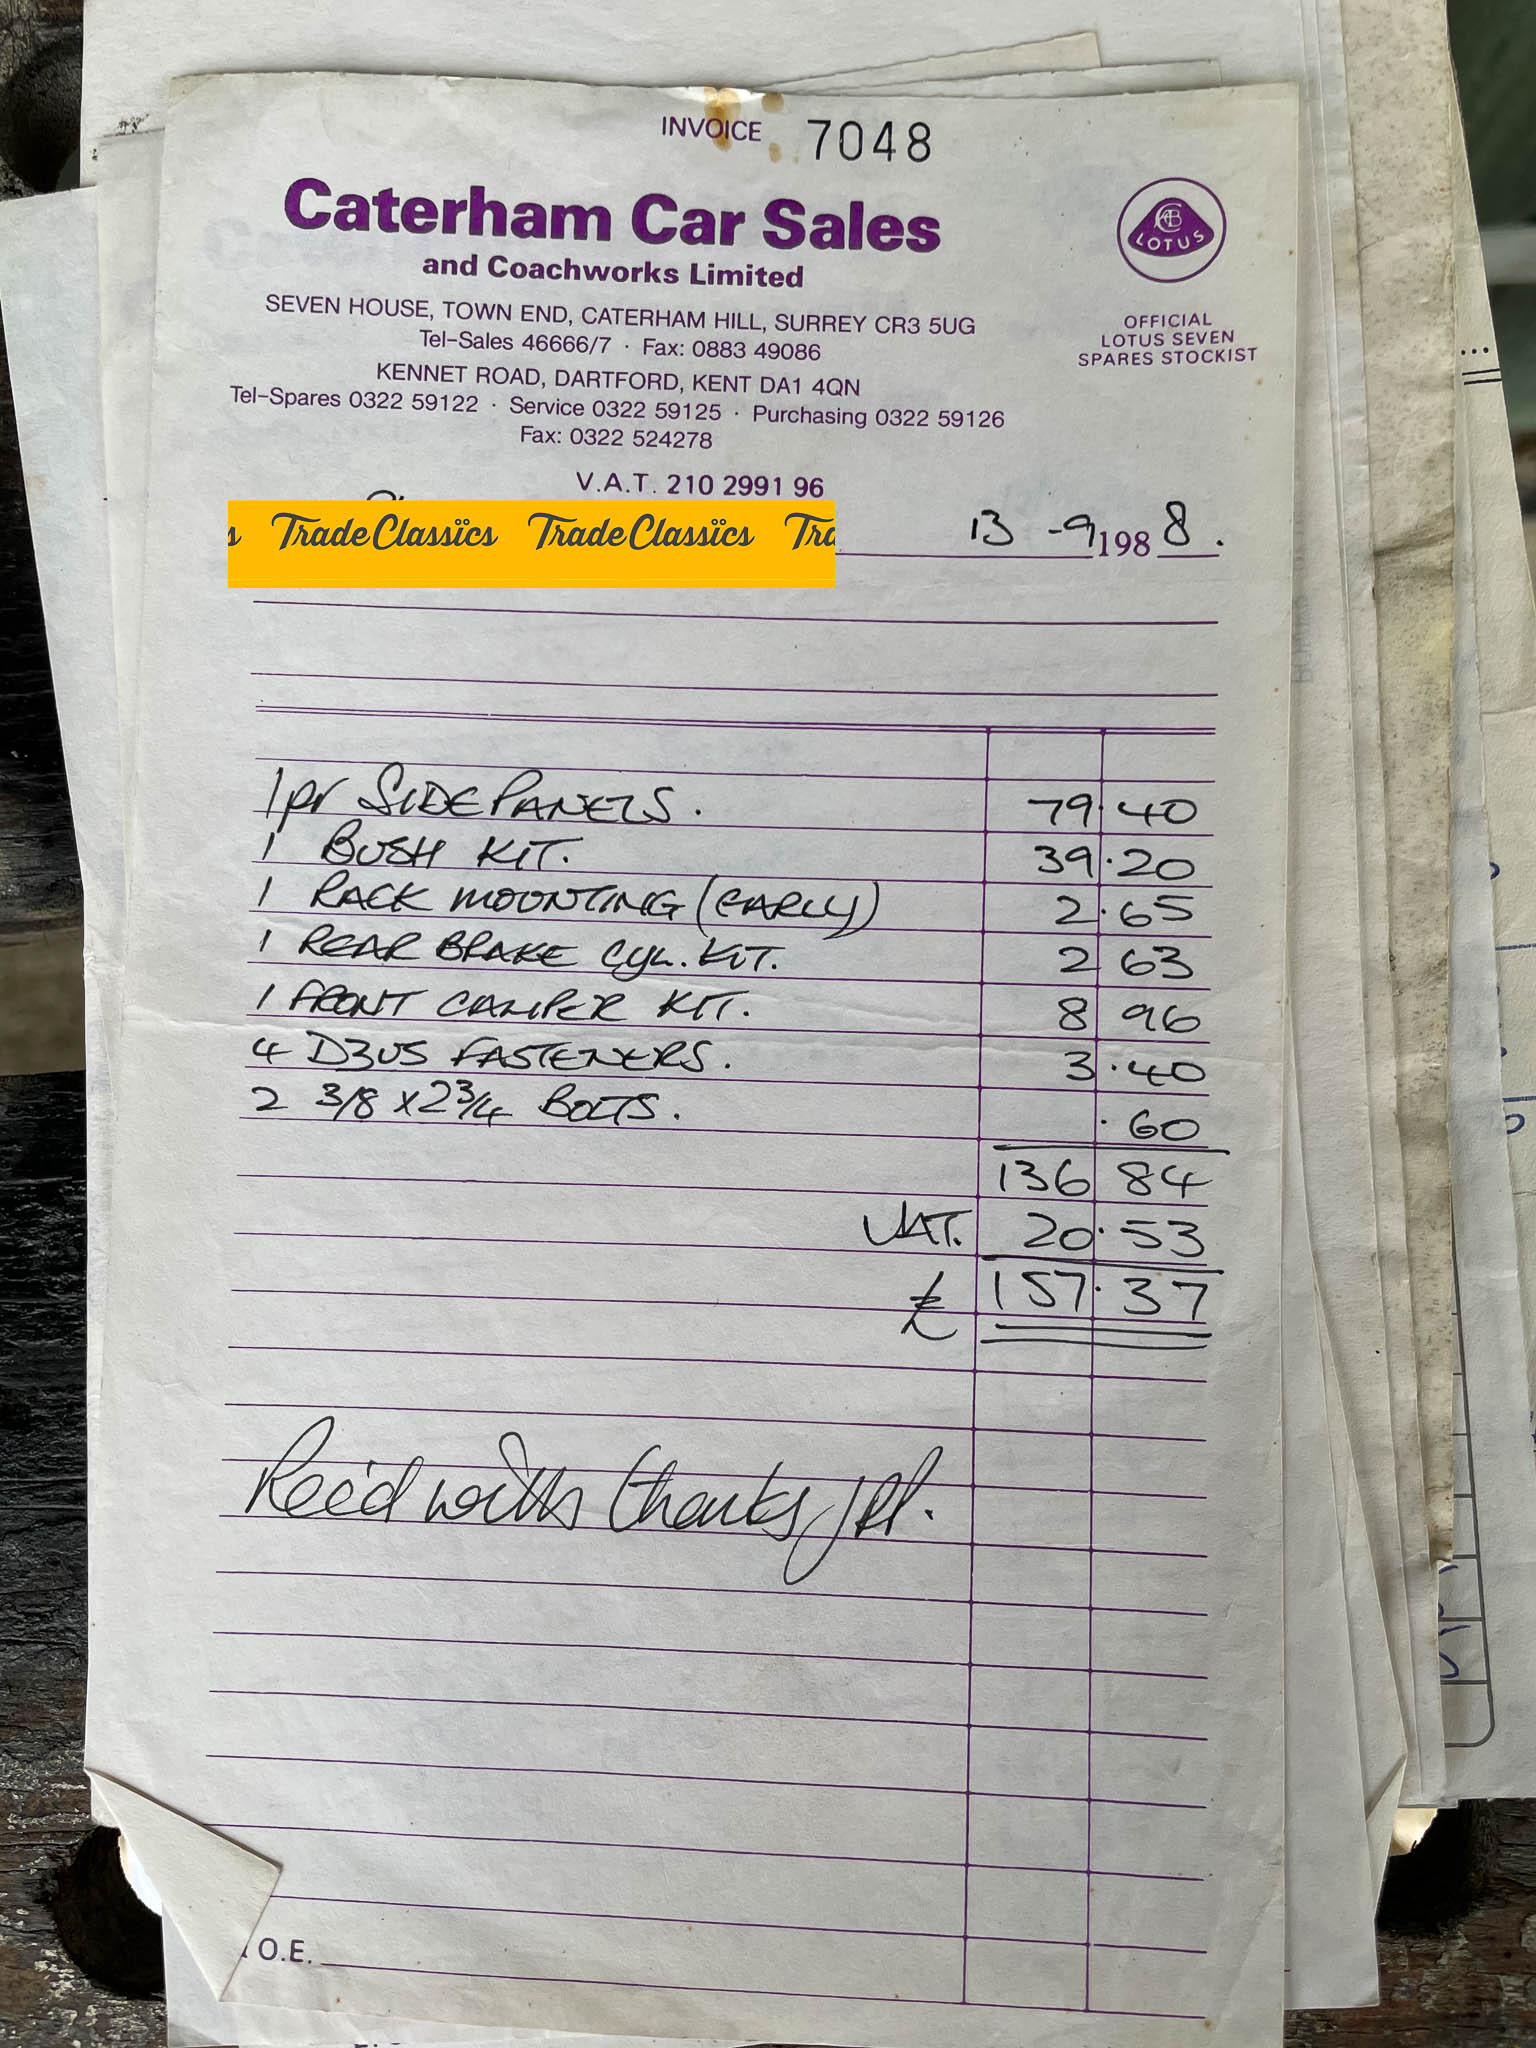 INVOICE 7048
Caterham Car Sales
and Coachworks Limited
SEVEN HOUSE, TOWN END, CATERHAM HILL, SURREY CR3 5UG
Tel-Sales 46666/7 · Fax: 0883 49086
KENNET ROAD, DARTFORD, KENT DA1 4QN
Tel-Spares 0322 59122 · Service 0322 59125 · Purchasing 0322 59126
Fax: 0322 524278
V.A.T. 210 2991 96
LOTUS
OFFICIAL
LOTUS SEVEN
SPARES STOCKIST
s TradeClassics TradeClassics Tra
13 -9 1988.
1 pr SIDE PANELS. 79.40
1 BUSH KIT. 39.20
1 RACK MOUNTING (EARLY) 2.65
1 REAR BRAKE CYL. KIT. 2 63
1 FRONT CALIPER KIT. 8 96
4 DZUS FASTENERS. 3.40
2 3/8 x 2 3/4 BOLTS. .60
136 84
VAT. 20.53
£ 157.37
Rec'd with thanks
O.E.